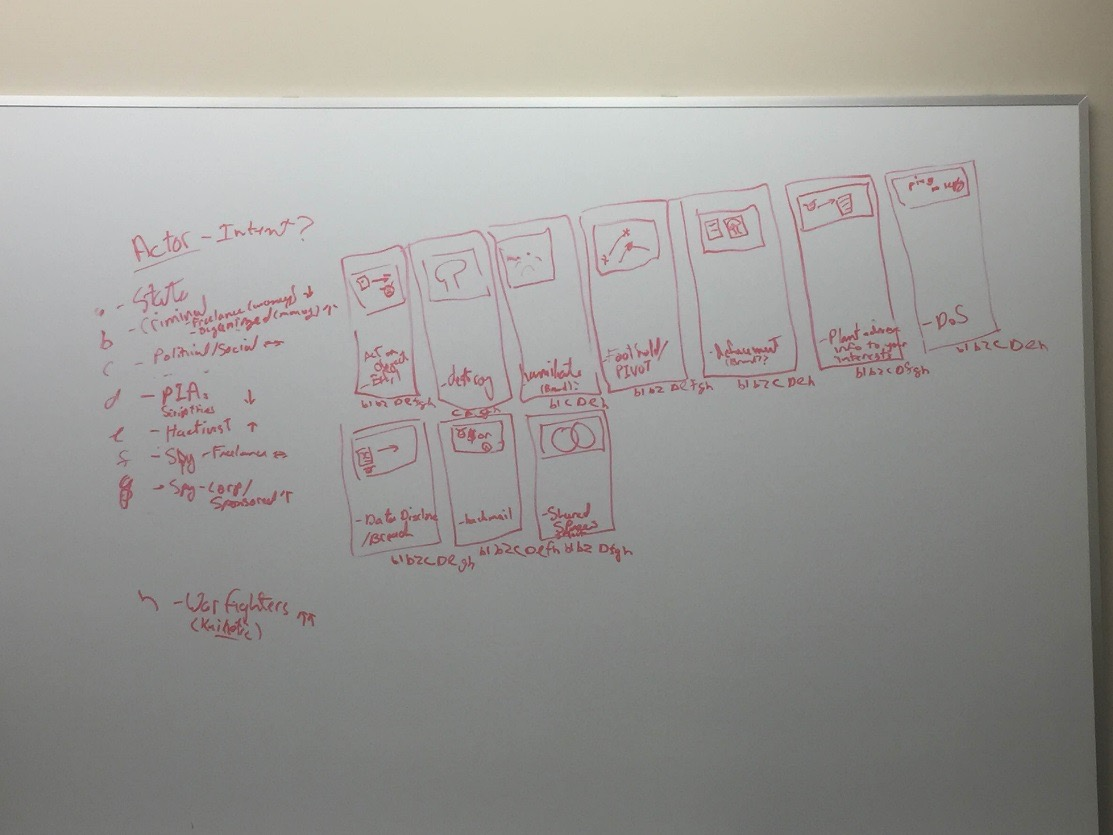 Actor - Intent?
a - State
b - Criminal - Freelance (money) ↓
- Organized (money) ↑
c - Political/Social
d - PIA.
Scripties ↓
e - Hactivist ↑
f - Spy - Freelance
g - Spy - Corp/
Sponsored ↑
h - War Fighters ↑↑
(Kniotic)
Act on
Object
- Exfil
b1 b2 D e f g h
- destroy
humiliate
(Brand)?
b1 C D e h
Foothold/
PIVOT
b1 b2 D e f g h
- Defacement
(Brand)?
b1 b2 C D e h
- Plant
info to your
interests
b1 b2 C D f g h
ping
- DoS
b1 b2 C D e h
- Data Disclose
/Breach
b1 b2 C D e g h
- blackmail
b1 b2 C D e f h
- Shared
b1 b2 D f g h